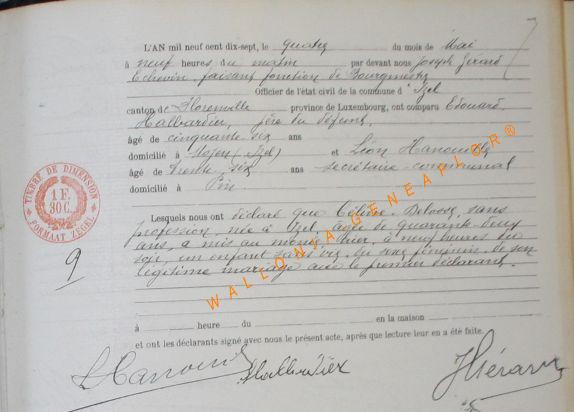 L'AN mil neuf cent dix-sept, le quatre du mois de Mai
à neuf heures du matin par devant nous Joseph Gérard
Echevin, faisant fonction de Bourgmestre
Officier de l'état civil de la commune d'Izel
canton de Florenville province de Luxembourg, ont comparu Edouard
Halbardier, père du défunt,
âgé de cinquante six ans
domicilié à (Izel) et Léon Hanouille
âgé de trente six ans secrétaire communal
domicilié à Pin
Lesquels nous ont déclaré que sans
profession, née à Izel, âgée de quarante deux
ans, a mis au monde hier, à neuf heures du
soir, un enfant sans vie, du sexe féminin, de son
légitime mariage avec le premier déclarant.
à heure du en la maison
et ont les déclarants signé avec nous le présent acte, après que lecture leur en a été faite.
TIMBRE DE DIMENSION
1 F.
30 C.
FORMAAT ZEGEL
9
WALLONIA GENEAPLOR ®
Halbardier
JGérard